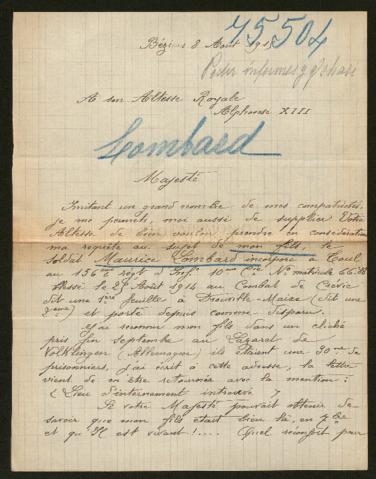 75504
Béziers 8 Août 191
Pedir informes
A son Altesse Royale
Alphonse XIII
Lombard
Majesté
Imitant un grand nombre de mes compatriotes,
je me permets, moi aussi de supplier Votre
Altesse de bien vouloir prendre en considération
ma requête au sujet de mon fils, le
soldat Maurice Lombard incorporé à Toul
au 156e régt d'Inf. 10me Cie No matricule
blessé le 25 Août 1914 au Combat de Crévic
dit une 1ère feuille à Drouville-Maixe (dit une
2ème) et porté depuis comme disparu.
J'ai reconnu mon fils dans un cliché
pris fin septembre au Lazaret de
Völklingen (Allemagne) ils étaient une 30ne de
prisonniers, j'ai écrit à cette adresse, la lettre
vient de m'être retournée avec la mention :
(Lieu d'internement introuvé)
Si votre Majesté pouvait obtenir de
savoir que mon fils était bien là, en 7bre
et qu'Il est vivant !.... Quel réconfort pour